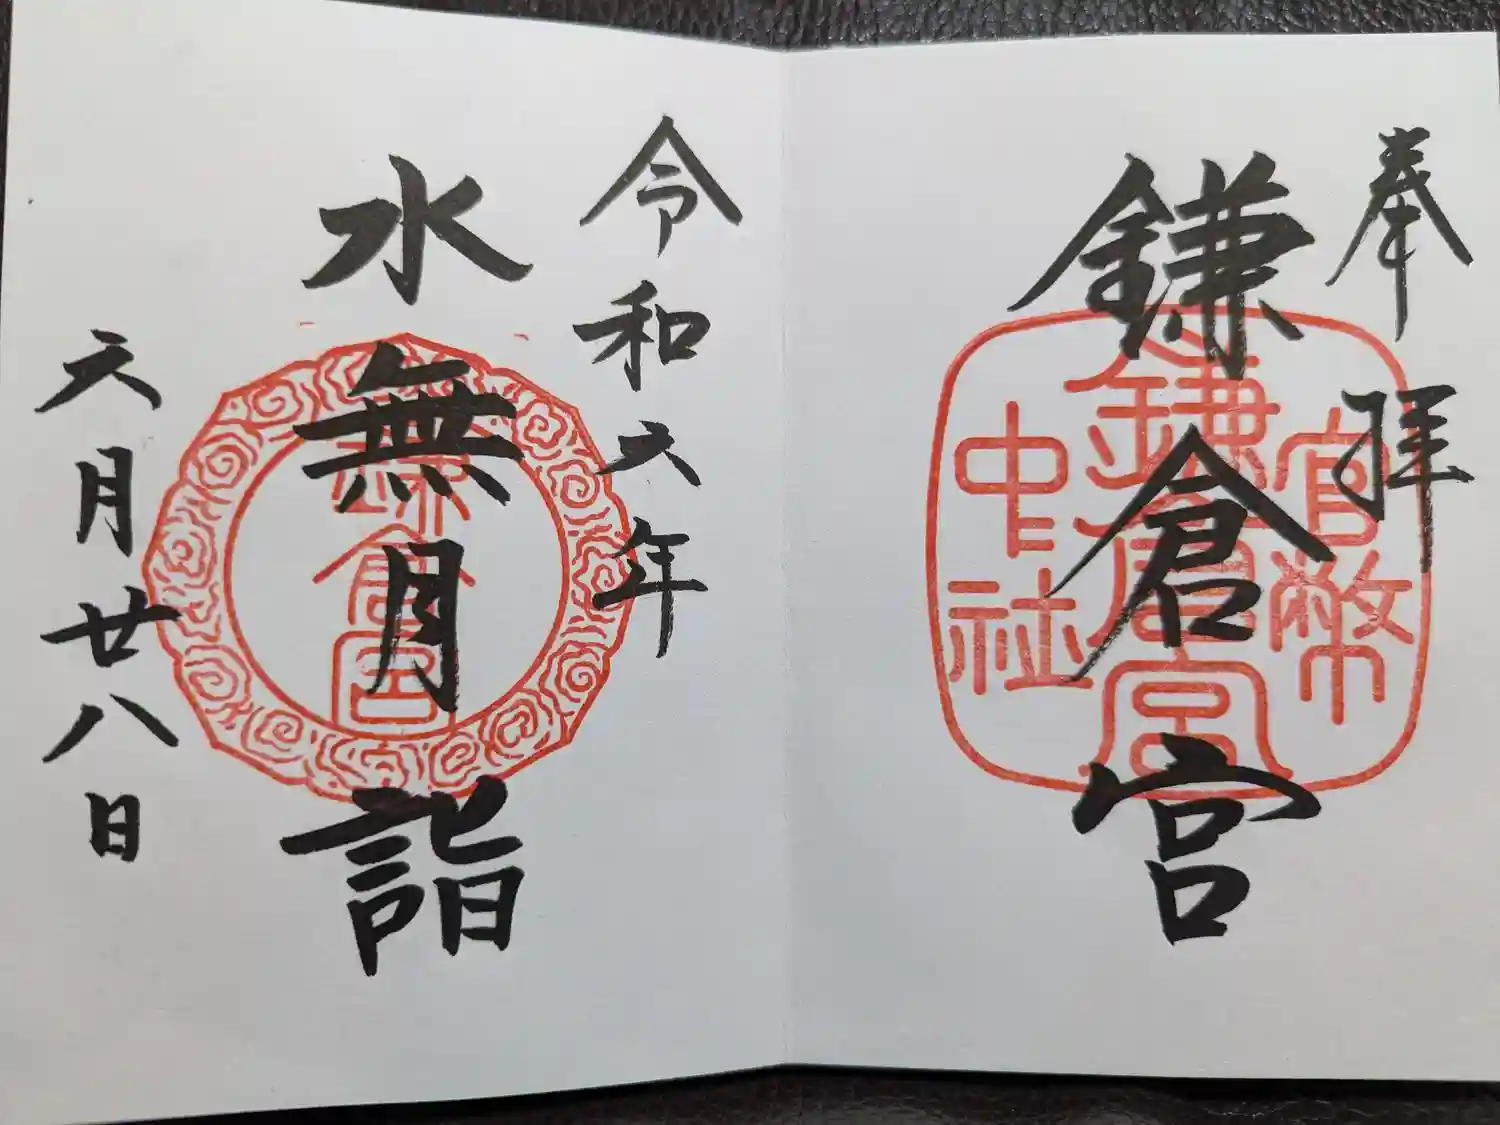 奉拝
鎌倉宮
官幣
鎌倉宮
中社
令和六年
水無月詣
鎌倉宮
六月廿八日